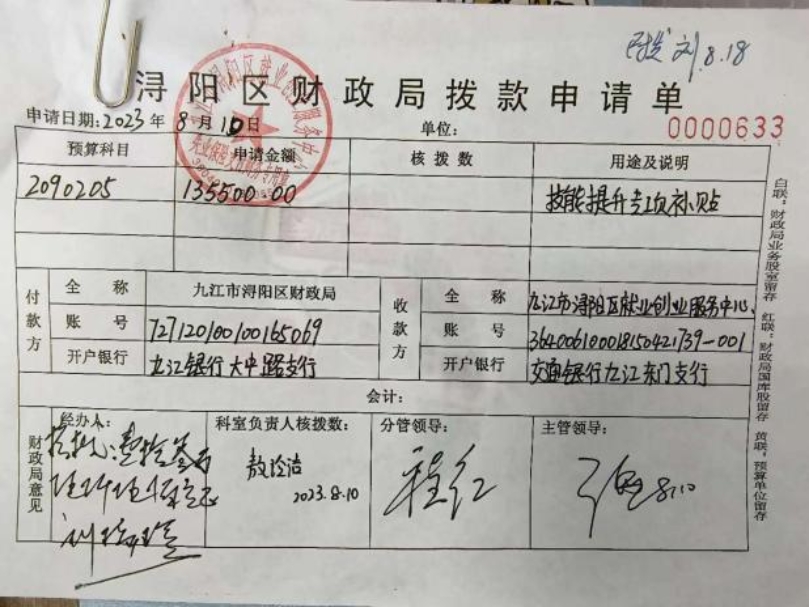 8.18
浔阳区财政局拨款申请单
申请日期:2023年8月10日 单位: 0000633
预算科目 申请金额 核拨数 用途及说明
2090205 135500.00 技能提升专项补贴
付款方 全称 九江市浔阳区财政局 收款方 全称 九江市浔阳区就业创业服务中心
账号 727120100100165069 账号 364006100018150421739-001
开户银行 九江银行大中路支行 开户银行 交通银行九江东门支行
会计:
财政局意见 经办人: 科室负责人核拨数: 分管领导: 主管领导:
2023.8.10 程红 8.10
白联:财政局业务股室留存 红联:财政局国库股留存 黄联:预算单位留存